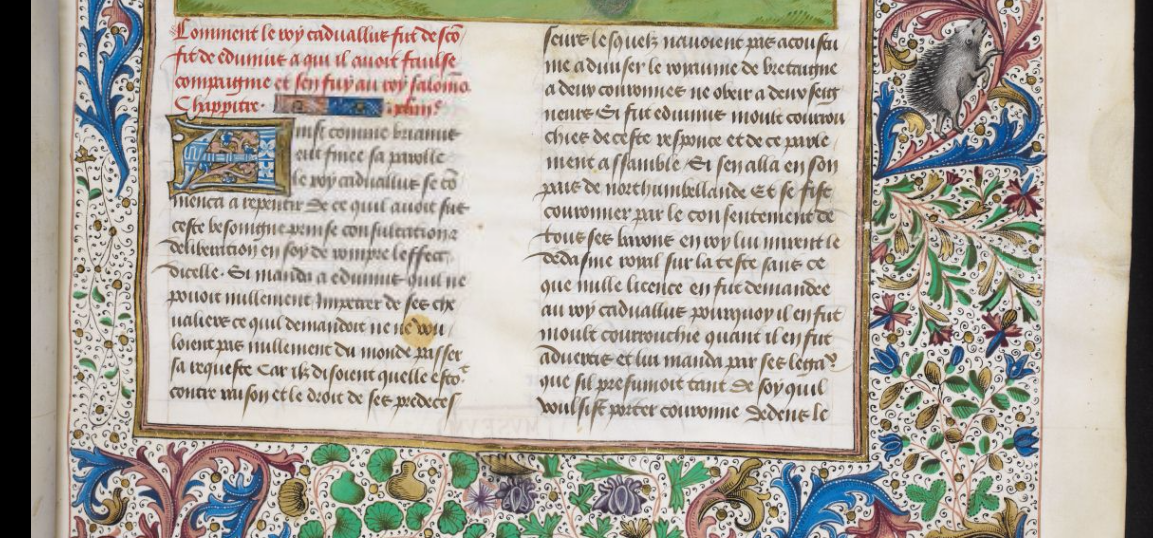 Comment le roy cadvallus fut desco͂
fit de edwinus a qui il avoit faulse
compaignie et sen fuy au roy salomo͂.
Chappitre. xliiii͂e
Ainsi comme brianus
eut finee sa parolle
le roy cadvallus se co͂
menca a repentir De ce quil avoit fait
ceste besoingne prinse consultation
deliberation en soy de rompre leffect
dicelle. Si manda a edwinus quil ne
povoit nullement Impetrer de ses che
valiers ce quil demandoit ne ne vou
loient pas nullement du monde passer
sa requeste Car ilz disoient quelle esto.t
contre raison et le droit de ses predeces
seurs lesquelz navoient pas acoustu
me a diviser le royaume de bretaigne
a deux couronnes ne obeir a deux seig
neurs Si fut edwinus moult courrou
chies de ceste response et de ce parle
ment assamble Si sen alla en son
pais de northumbellande Et se fist
couronner par le consentement de
tous ses barons en roy lui mirent le
dedasme royal sur la teste sans ce
que nulle licence en fut demandee
au roy cadvallus pourquoy il en fut
moult courrouchie quant il en fut
advertis et lui manda par ses lega͂
que sil presumoit tant De soy quil
voulsist porter couronne Dedens le